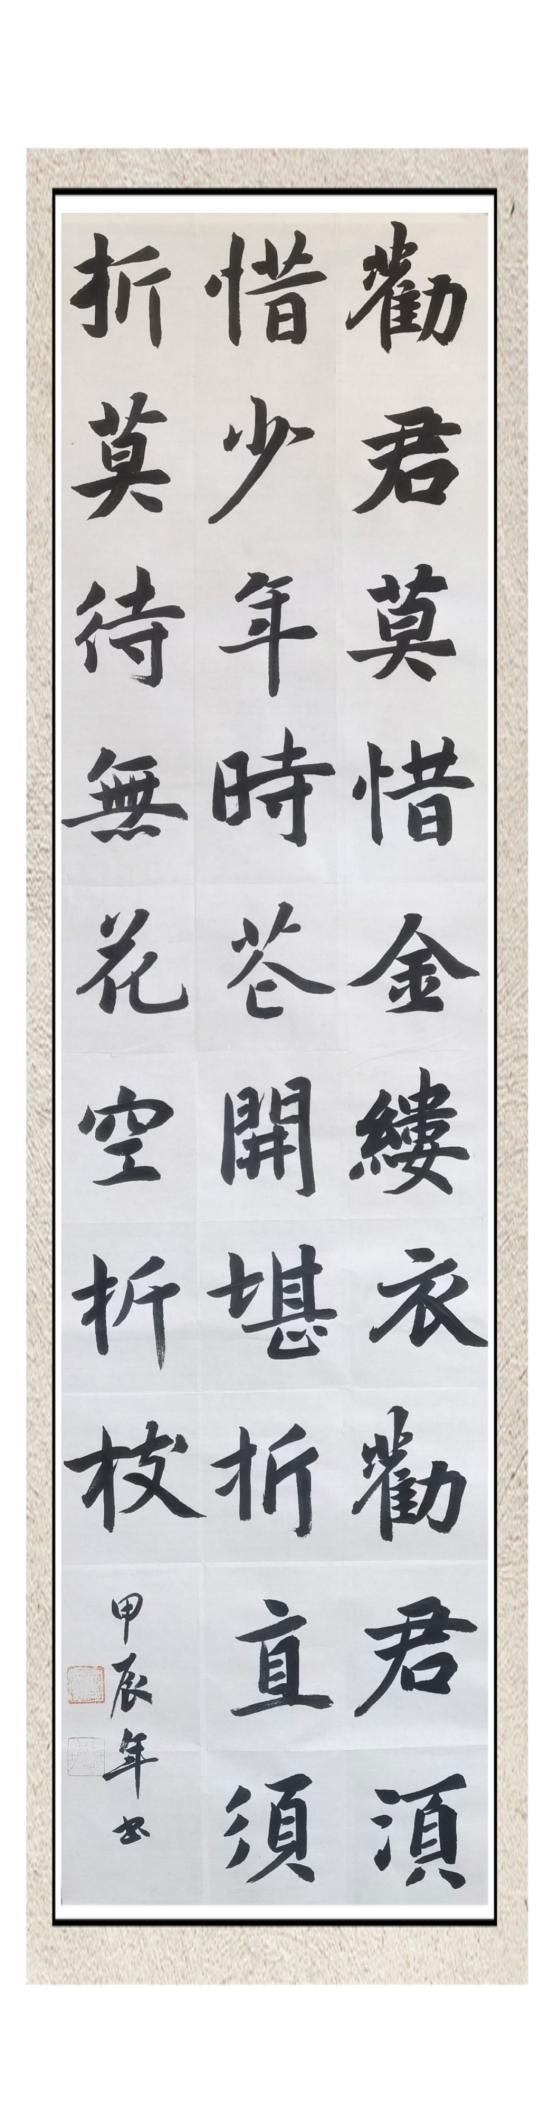 勸君莫惜金縷衣勸君湏
惜少年時苍開堪折直須
折莫待無花空折枝
甲辰年书